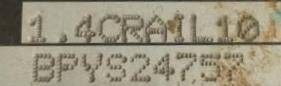 1.4CRAIL10
BPYS24757